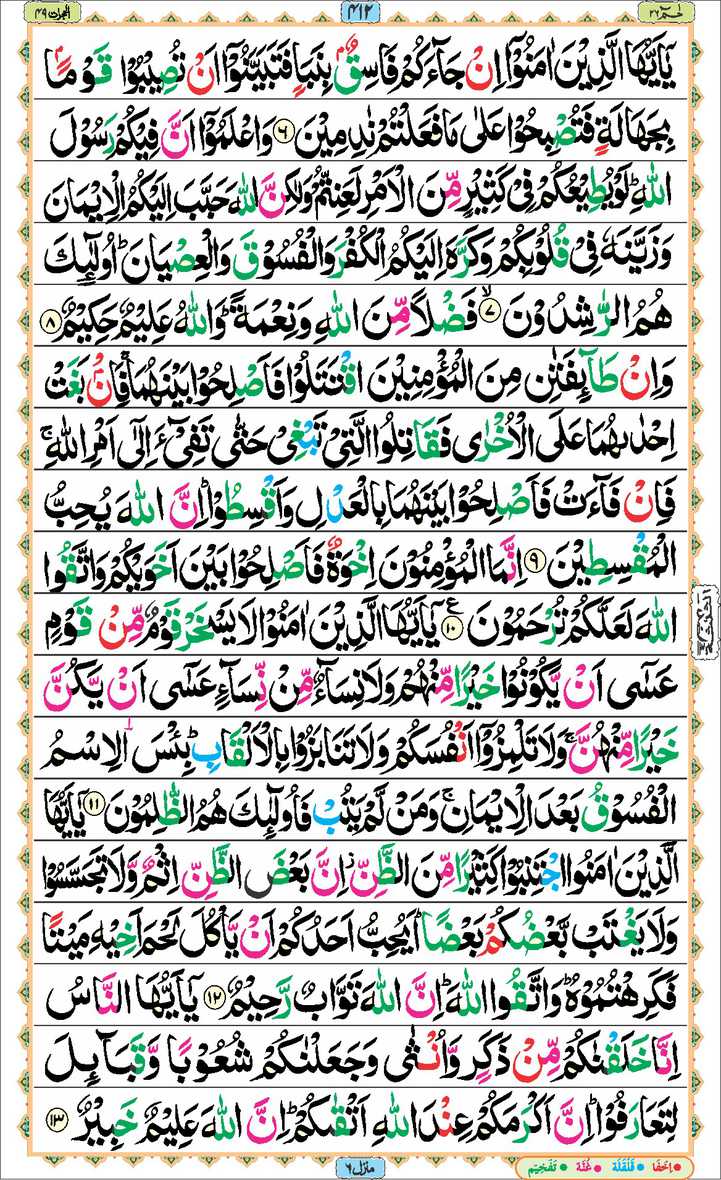 الحجرات ٤٩
٤١٢
حٰمٓ ٢٦
يٰۤاَيُّهَا الَّذِيْنَ اٰمَنُوْۤا اِنْ جَآءَكُمْ فَاسِقٌۢ بِنَبَاٍ فَتَبَيَّنُوْۤا اَنْ تُصِيْبُوْا قَوْمًاۢ
بِجَهَالَةٍ فَتُصْبِحُوْا عَلٰى مَا فَعَلْتُمْ نٰدِمِيْنَ ۶ وَاعْلَمُوْۤا اَنَّ فِيْكُمْ رَسُوْلَ
اللّٰهِ ؕ لَوْ يُطِيْعُكُمْ فِيْ كَثِيْرٍ مِّنَ الْاَمْرِ لَعَنِتُّمْ وَلٰكِنَّ اللّٰهَ حَبَّبَ اِلَيْكُمُ الْاِيْمَانَ
وَزَيَّنَهٗ فِيْ قُلُوْبِكُمْ وَكَرَّهَ اِلَيْكُمُ الْكُفْرَ وَالْفُسُوْقَ وَالْعِصْيَانَ ؕ اُولٰٓئِكَ
هُمُ الرّٰشِدُوْنَ ۙ ۷ فَضْلًا مِّنَ اللّٰهِ وَنِعْمَةً ؕ وَاللّٰهُ عَلِيْمٌ حَكِيْمٌ ۸
وَاِنْ طَآئِفَتٰنِ مِنَ الْمُؤْمِنِيْنَ اقْتَتَلُوْا فَاَصْلِحُوْا بَيْنَهُمَا ۚ فَاِنْۢ بَغَتْ
اِحْدٰىهُمَا عَلَى الْاُخْرٰى فَقَاتِلُوا الَّتِيْ تَبْغِيْ حَتّٰى تَفِيْٓءَ اِلٰۤى اَمْرِ اللّٰهِ ۚ
فَاِنْ فَآءَتْ فَاَصْلِحُوْا بَيْنَهُمَا بِالْعَدْلِ وَاَقْسِطُوْا ؕ اِنَّ اللّٰهَ يُحِبُّ
الْمُقْسِطِيْنَ ۹ اِنَّمَا الْمُؤْمِنُوْنَ اِخْوَةٌ فَاَصْلِحُوْا بَيْنَ اَخَوَيْكُمْ وَاتَّقُوا
اللّٰهَ لَعَلَّكُمْ تُرْحَمُوْنَ ۱۰ ع يٰۤاَيُّهَا الَّذِيْنَ اٰمَنُوْا لَا يَسْخَرْ قَوْمٌ مِّنْ قَوْمٍ
عَسٰۤى اَنْ يَّكُوْنُوْا خَيْرًا مِّنْهُمْ وَلَا نِسَآءٌ مِّنْ نِّسَآءٍ عَسٰۤى اَنْ يَّكُنَّ
خَيْرًا مِّنْهُنَّ ۚ وَلَا تَلْمِزُوْۤا اَنْفُسَكُمْ وَلَا تَنَابَزُوْا بِالْاَلْقَابِ ؕ بِئْسَ الِاسْمُ
الْفُسُوْقُ بَعْدَ الْاِيْمَانِ ۚ وَمَنْ لَّمْ يَتُبْ فَاُولٰٓئِكَ هُمُ الظّٰلِمُوْنَ ۱۱ يٰۤاَيُّهَا
الَّذِيْنَ اٰمَنُوا اجْتَنِبُوْا كَثِيْرًا مِّنَ الظَّنِّ ؗ اِنَّ بَعْضَ الظَّنِّ اِثْمٌ وَّلَا تَجَسَّسُوْا
وَلَا يَغْتَبْ بَّعْضُكُمْ بَعْضًا ؕ اَيُحِبُّ اَحَدُكُمْ اَنْ يَّاْكُلَ لَحْمَ اَخِيْهِ مَيْتًا
فَكَرِهْتُمُوْهُ ؕ وَاتَّقُوا اللّٰهَ ؕ اِنَّ اللّٰهَ تَوَّابٌ رَّحِيْمٌ ۱۲ يٰۤاَيُّهَا النَّاسُ
اِنَّا خَلَقْنٰكُمْ مِّنْ ذَكَرٍ وَّاُنْثٰى وَجَعَلْنٰكُمْ شُعُوْبًا وَّقَبَآئِلَ
لِتَعَارَفُوْا ؕ اِنَّ اَكْرَمَكُمْ عِنْدَ اللّٰهِ اَتْقٰىكُمْ ؕ اِنَّ اللّٰهَ عَلِيْمٌ خَبِيْرٌ ۱۳
منزل ۶
اِخفَا • قَلْقَلَة • غُنَّة • تَفْخِيْم